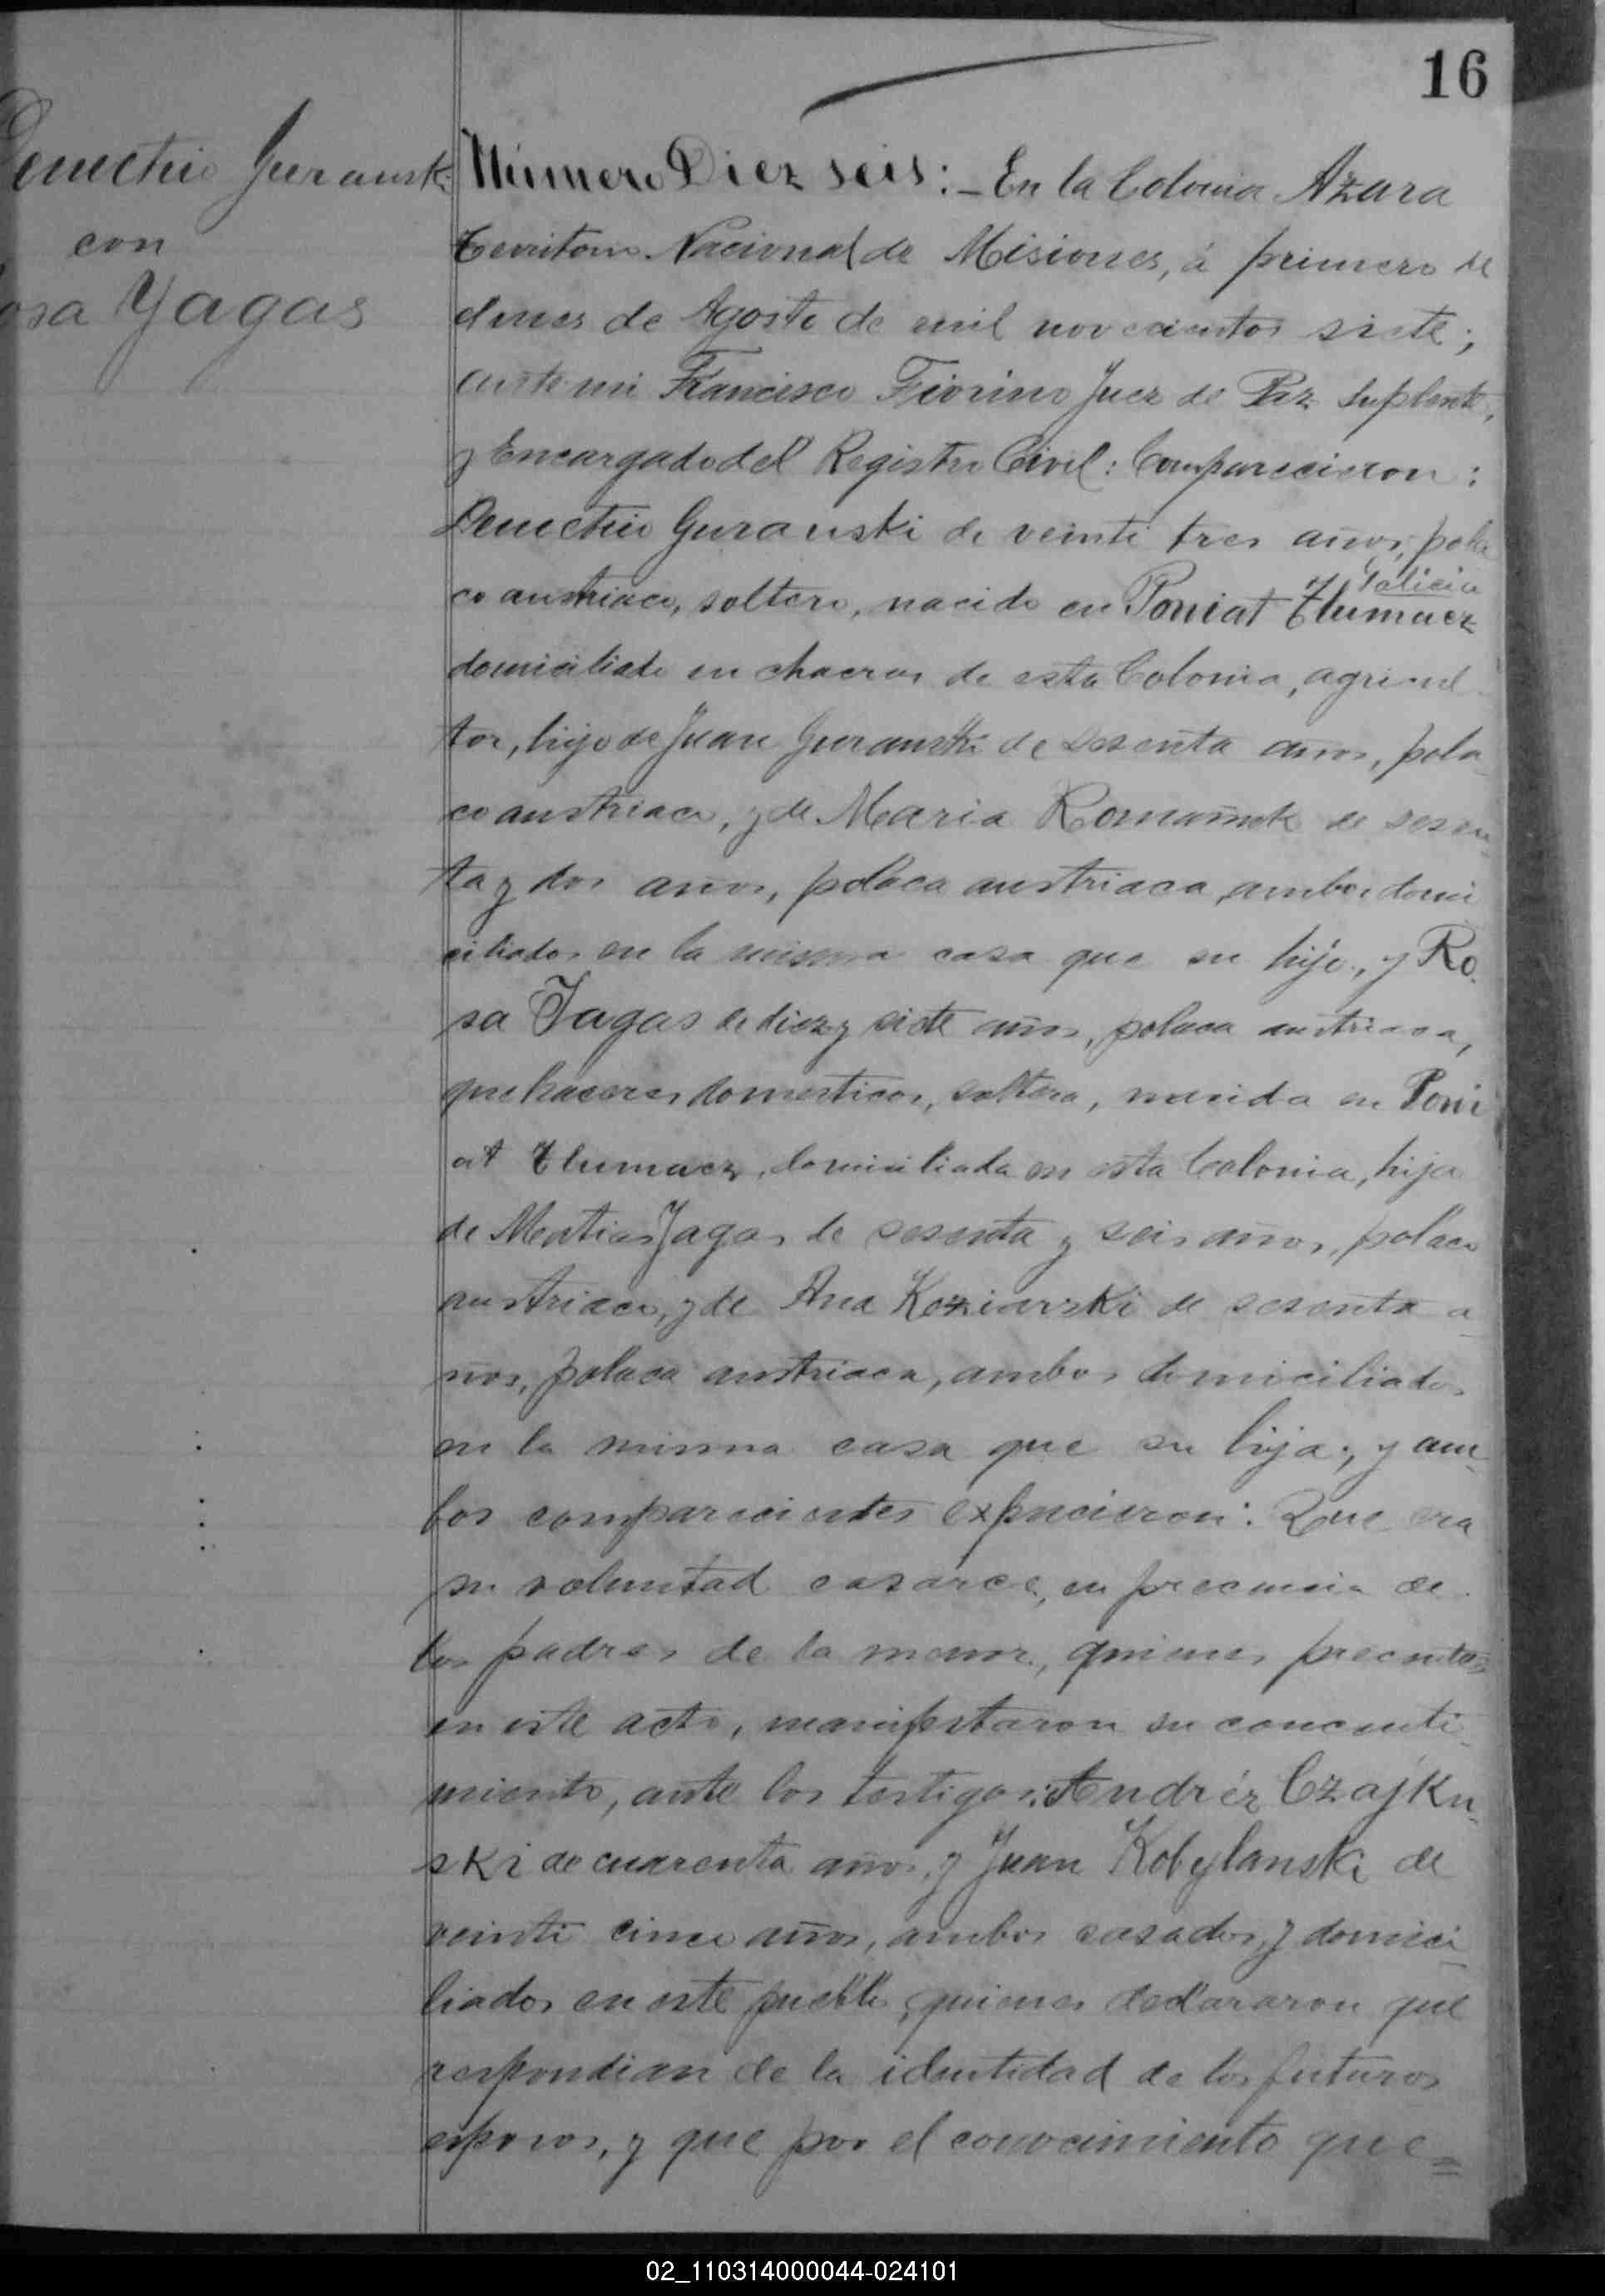 16
Demetrio Guranski
con
osa Yagas
Número Diez seis: - En la Colonia Azara
Territorio Nacional de Misiones, á primero de
del mes de Agosto de mil novecientos siete;
ante mi Francisco Fiorino Juez de Paz Suplente,
y Encargado del Registro Civil: Comparecieron:
Demetrio Guranski de veinti tres años, pola
Galicia
co austriaco, soltero, nacido en Poniat Tlumacz
domiciliado en chacras de esta Colonia, agricul
tor, hijo de Juan Guranski de sesenta años, pola
co austriaco, y de Maria de sesen
ta y dos años, polaca austriaca, ambos domi
ciliados en la misma casa que su hijo, y Ro
sa Jagas de diez y siete años, polaca austriaca,
quehaceres domesticos, soltera, nacida en Poni
at Tlumacz, domiciliada en esta Colonia, hija
de Matias Jagas de sesenta y seis años, polaco
austriaco, y de Ana Koziarski de sesenta a
ños, polaca austriaca, ambos domiciliados
en la misma casa que su hija; y am
bos comparecientes expucieron: Que era
su voluntad casarce, en precencia de
los padres de la menor, quienes precentes
en este acto, manifestaron su concenti
miento, ante los testigos: Andrés Czajku
ski de cuarenta años, y Juan Kobylanski de
veinti cinco años, ambos casados, y domici
liados en este pueblo, quienes declararon que
respondian de la identidad de los futuros
esposos, y que por el conocimiento que=
02_110314000044-024101